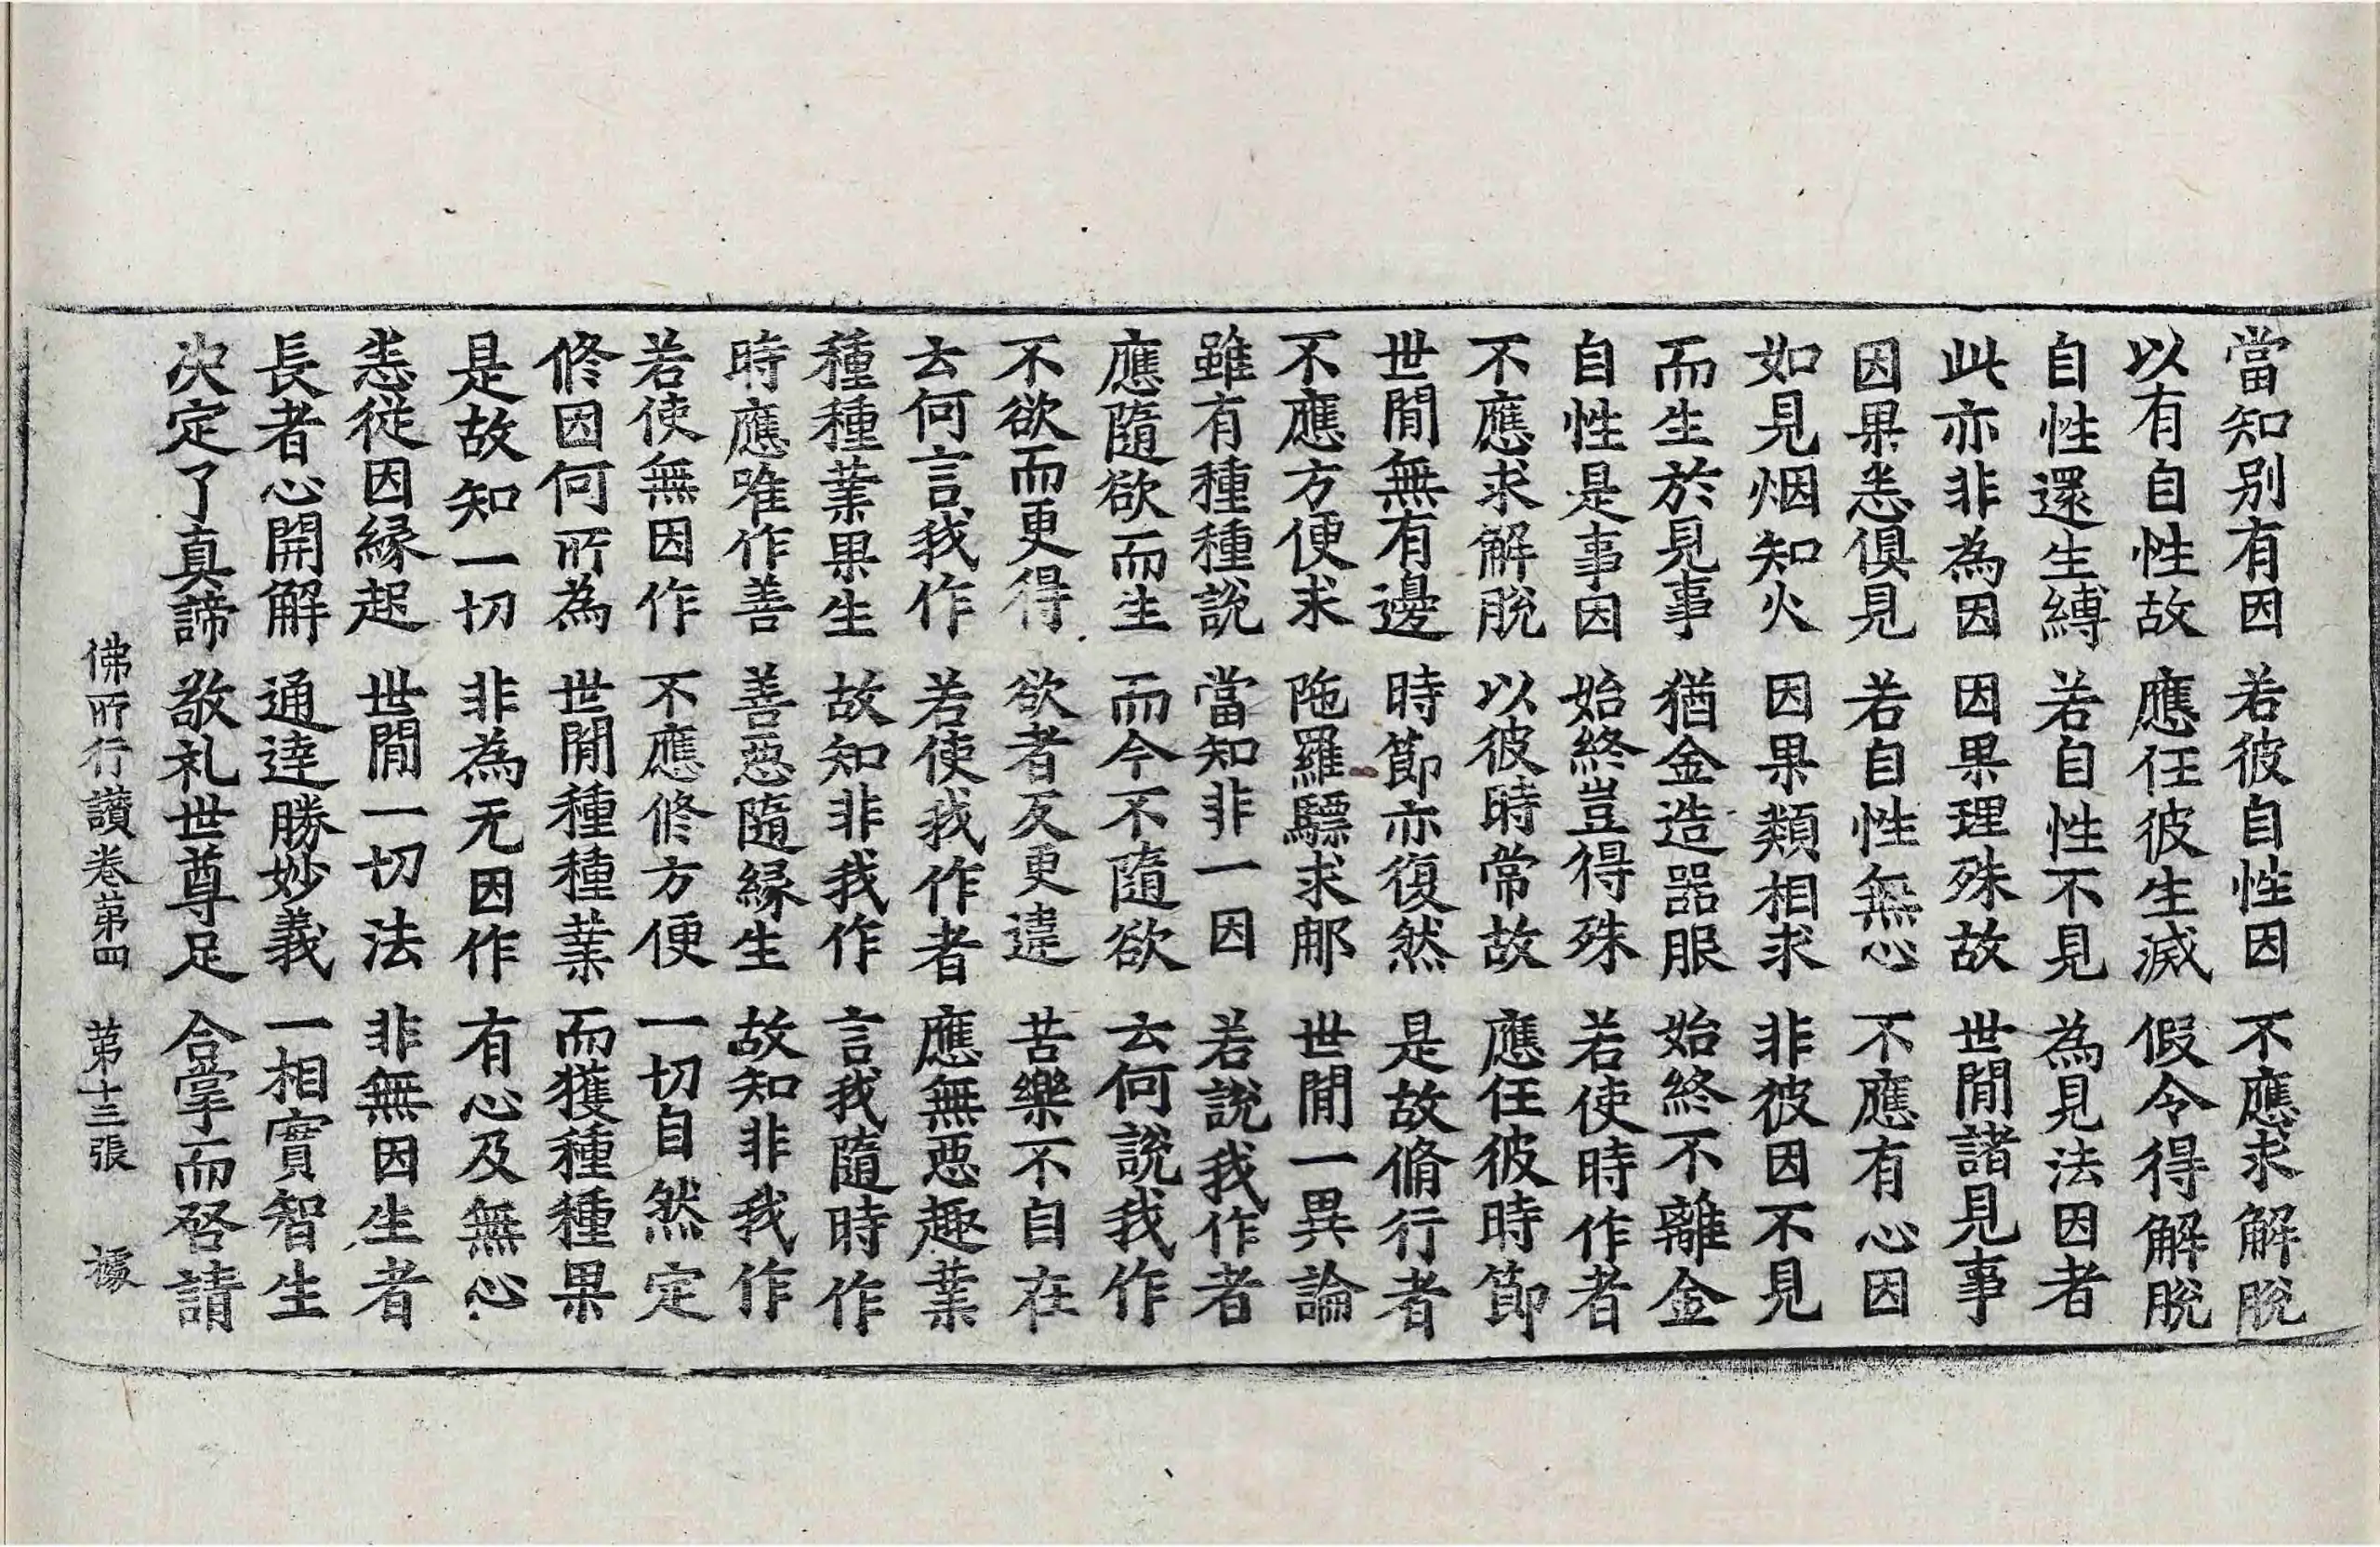 當知别有因 若彼自性因 不應求解脫
以有自性故 應任彼生滅 假令得解脫
自性還生縛 若自性不見 為見法因者
此亦非為因 因果理殊故 世閒諸見事
因果悉俱見 若自性無心 不應有心因
如見烟知火 因果類相求 非彼因不見
而生於見事 猶金造器服 始終不離金
自性是事因 始終豈得殊 若使時作者
不應求解脫 以彼時常故 應任彼時節
世閒無有邊 時節亦復然 是故脩行者
不應方便求 陁羅驃求那 世閒一異論
雖有種種說 當知非一因 若說我作者
應隨欲而生 而今不隨欲 云何說我作
不欲而更得 欲者反更違 苦樂不自在
云何言我作 若使我作者 應無惡趣業
種種業果生 故知非我作 言我隨時作
時應唯作善 善惡隨緣生 故知非我作
若使無因作 不應修方便 一切自然定
修因何所為 世閒種種業 而獲種種果
是故知一切 非為无因作 有心及無心
悉從因緣起 世閒一切法 非無因生者
長者心開解 通達勝妙義 一相實智生
决定了真諦 敬礼世尊足 合掌而啓請
佛所行讚卷第四 第十三張 據